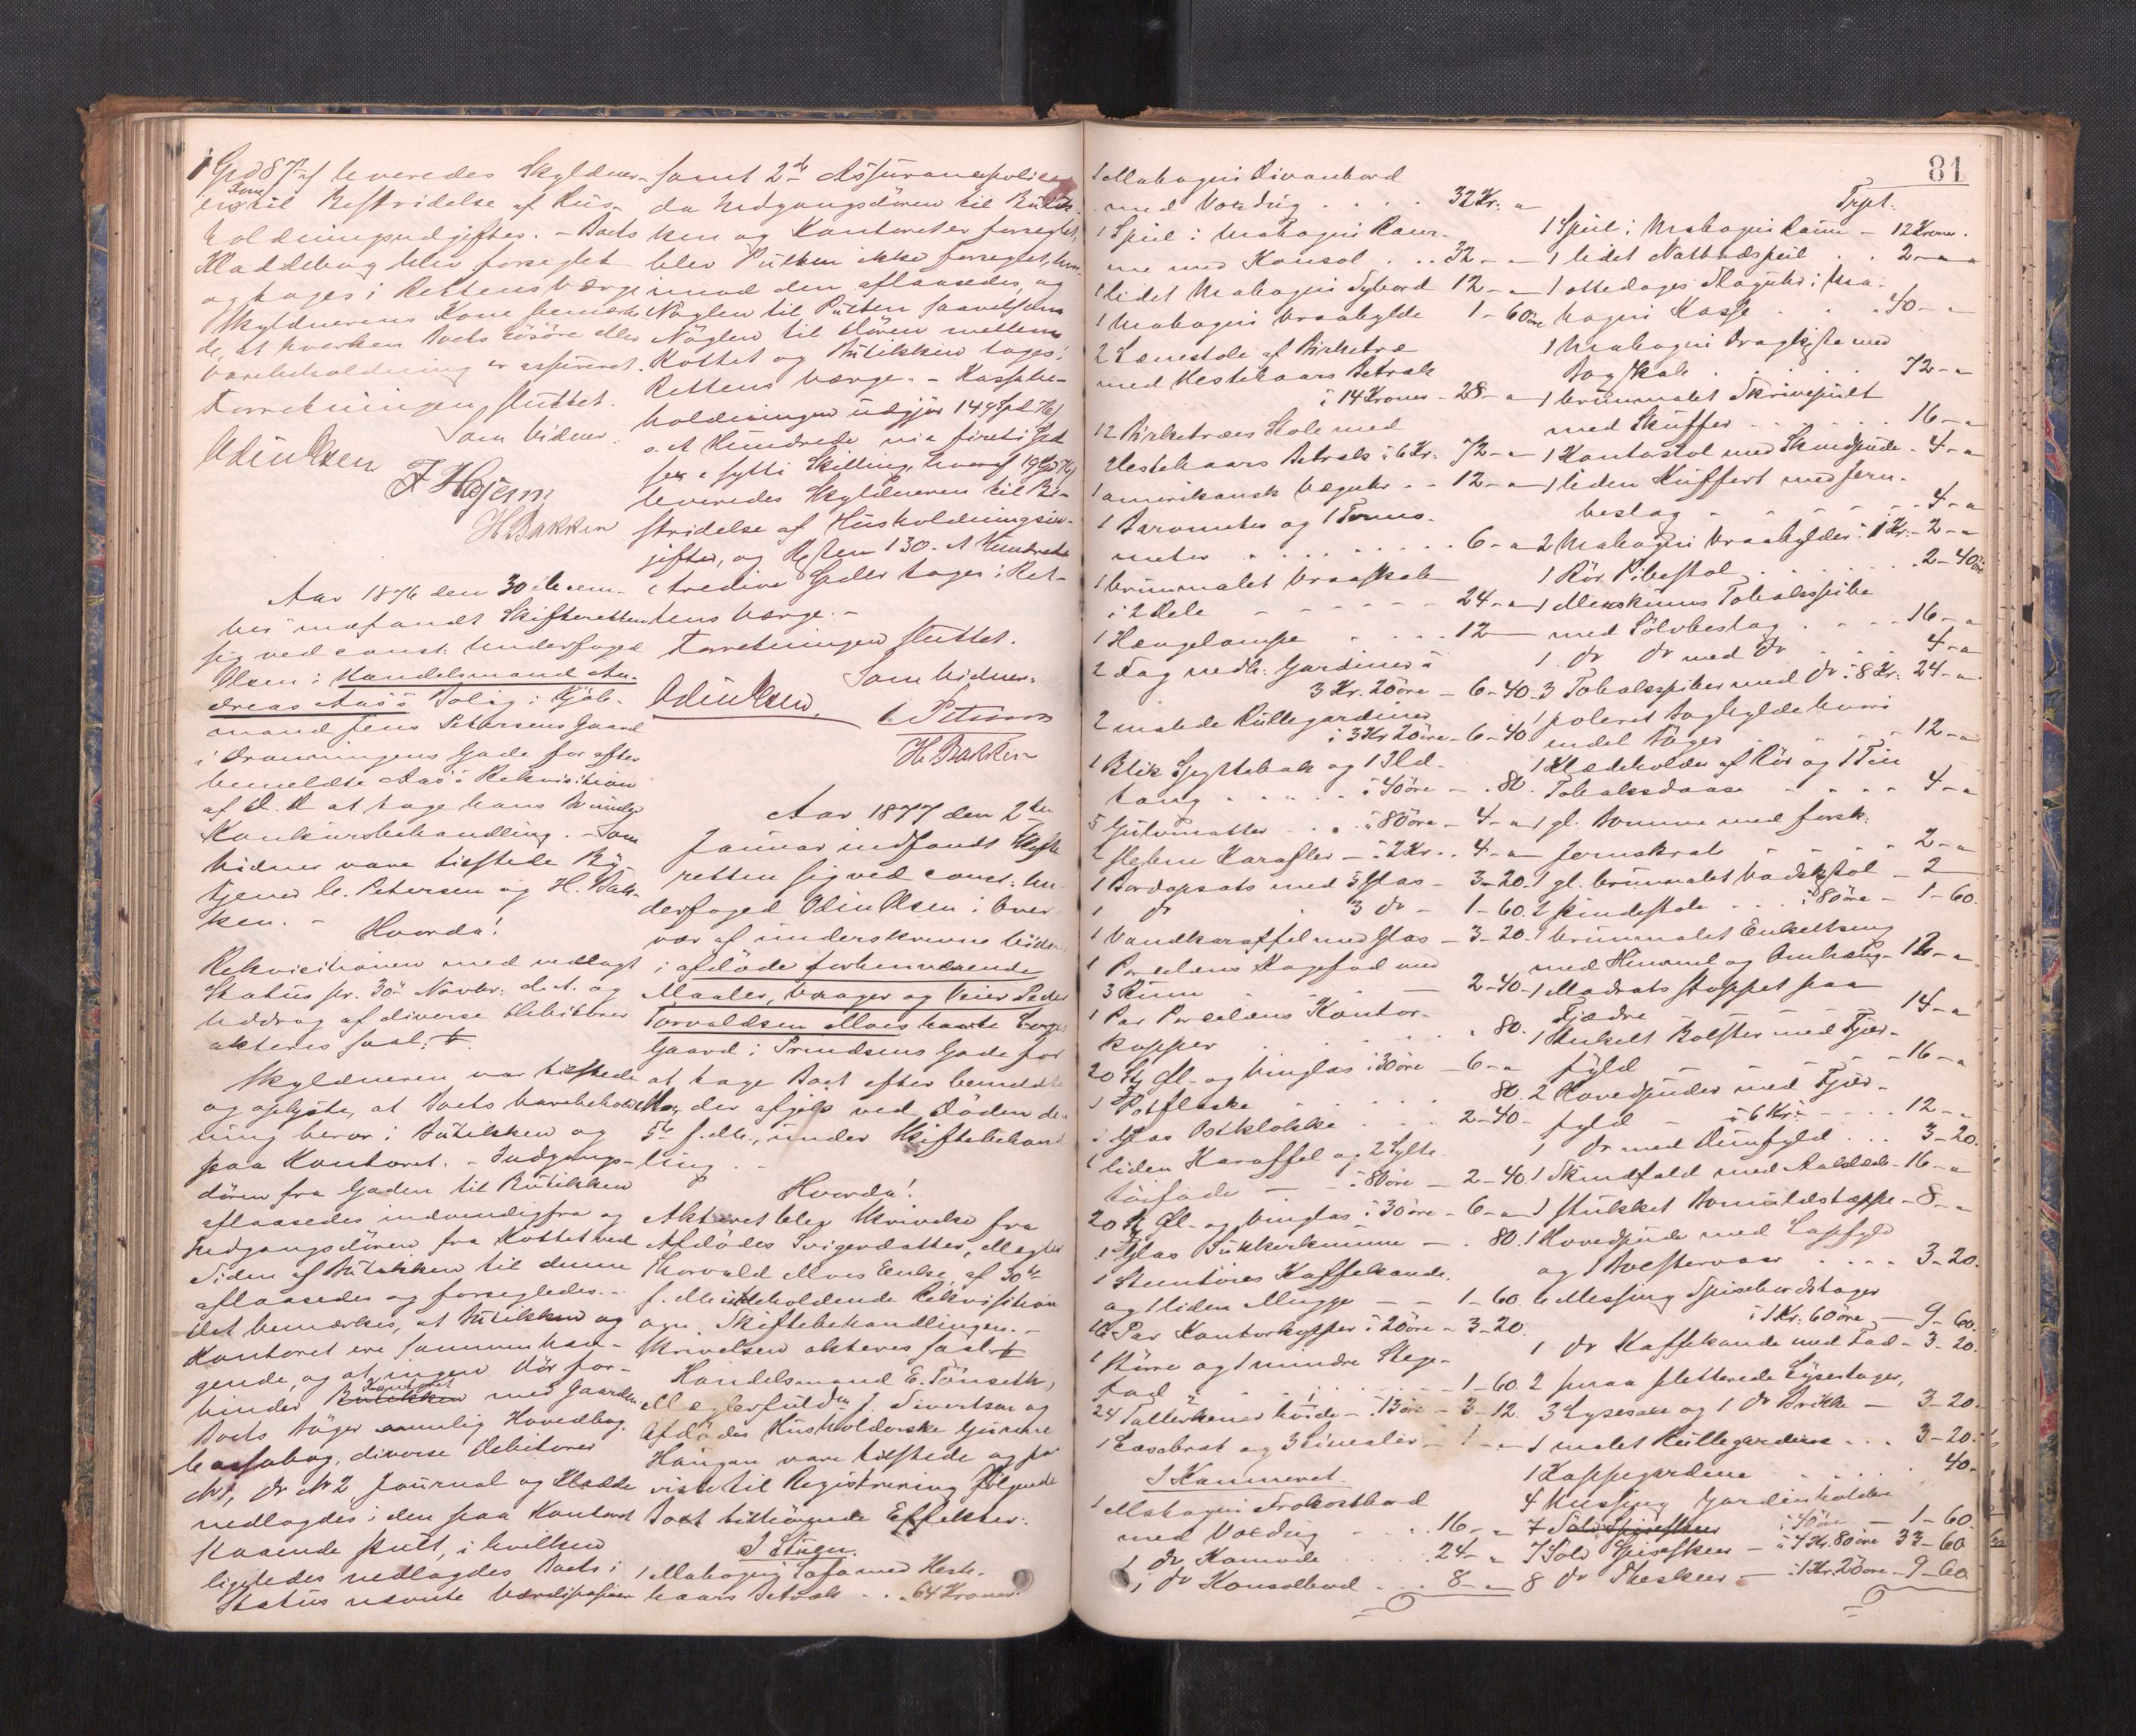 1 Spd 87 af leveredes Skyldner-
Kone
ens til Bestridelse af Hus-
holdningsudgifter. - Boets
Kladdebog blev forseglet
og toges i Rettens Værge
Skyldnerens Kone bemærke-
de, at hverken Boets Løsøre eller
Varebeholdning er assureret.
Forretningen sluttet.
Som Vidner.
Odin Olsen
F Højem
H. Bakken
Aar 1876 den 30 Decem-
ber indfandt Skifteretten
sig ved const. Underfoged
Olsen i Handelsmand An-
dreas Aas's Bolig i Kjøb-
mand Jens Petersens Gaard
i Dronningens Gade for efter
bemeldte Aas's Rekvisition
af D. D. at tage hans Bo under
Konkursbehandling. - Som
Vidner vare tilstede By-
tjener C. Petersen og H. Bak-
ken. - Hvorda!
Rekvisitionen med vedlagt
Status pr. 30 Novbr. d. A. og
Uddrag af diverse Debitorer
akteres saal:
Skyldneren var tilstede
og oplyste, at Boets Varebehold-
ning beror i Butikken og
paa Kontoret. - Indgangs-
døren fra Gaden til Butikken
aflaasedes indvendigfra og
Indgangsdøren fra Kottet ved
Siden af Butikken til denne
aflaasedes og forsegledes. -
Det bemærkes, at Butikken og
Kontoret ere sammenhæn-
gende, og at ingen Dør for-
Kontoret
binder Butikken med Gaarden
Boets Bøger nemlig Hovedbog
Cassabog, diverse Debitorer
No 1, Do No 2, Journal og Kladde
nedlagdes i den paa Kontoret
staaende Pult, i hvilken
ligeledes nedlagdes Boets i
Status nævnte Værdipapirer
samt 2de Assurancepolicer
da Indgangsdøren til Butik-
ken og Kontoret er forseglet,
blev Pulten ikke forseglet, hvor-
imod den aflaasedes, og
Nøglen til Pulten saavelsom
Nøglen til Døren mellem
Kottet og Butikken toges i
Rettens Værge. - Kassabe-
holdningen udgjør 149 Spd 76 s
et Hundrede ni og firti Spd
sex og sytti Skilling, hvoraf 19 Spd 76 s
leveredes Skyldneren til Be-
stridelse af Husholdningsud-
gifter, og Resten 130 - et Hundrede
tredive Spdlr toges i Ret-
tens Værge. -
Forretningen sluttet.
Som Vidner.
Odin Olsen
C Petersen
H. Bakken
Aar 1877 den 2den
Januar indfandt Skifte
retten sig ved const. Un-
derfoged Odin Olsen i Over-
vær af underskrevne Vidner
i afdøde forhenværende
Maaler, Vrager og Veier Peder
Torvaldsen Moes havte Enge
Gaard i Prindsens Gade for
at tage Boet efter bemeldte
Moe, der afgik ved Døden den
5te f. M., under Skiftebehand-
ling. -
Hvorda!
Akteret blev Skrivelse fra
Afdødes Svigerdatter, Mægler
Thorvald Moes Enke, af 30te
f. M. indeholdende Rekvisition
om Skiftebehandlingen. -
Skrivelsen akteres saal.
Handelsmand E. Tønseth,
Mæglerfuldm. J. Sivertsen og
Afdødes Husholderske Gurine
Haugan vare tilstede og paa
viste til Registrering følgende
Boet tilhørende Effekter:
I Stuen.
1 Mahogni Sofa med Heste-
haars Betræk . . 64 Kroner
81
1 Mahogni Divanbord
med Voxdug . . . . 32 Kr. "
1 Speil i Mahogni Ram-
me med Konsol . . 32 - "
1 lidet Mahogni Sybord 12 - "
1 Mahogni Vraahylde 1 - 60 øre
2 Lænestole af Birketræ
med Hestehaars Betræk
à 14 Kroner - 28 - "
12 Birketræes Stole med
Hestehaars Betræk à 6 Kr. 72 - "
1 amerikansk Væguhr . . 12 - "
1 Barometer og 1 Termo-
meter . . . . . . . . 6 - "
1 brunmalet Vraaskab
i 2 Dele - - - - - - 24 - "
1 Hængelampe . . . . 12 -
2 Fag nedh: Gardiner à
3 Kr. 20 øre - 6 - 40
2 malede Rullegardiner
à 3 Kr 20 øre - 6 - 40
1 Blik Spyttebak og 1 Ild-
tang . . . . . à 40 øre - . 80.
5 Gulvmatter . . . à 80 øre - 4 - "
2 slebne Karafler - à 2 Kr. . 4 - "
1 Bordopsats med 5 Glas - 3 - 20.
1 Do . 3 Do - 1 - 60.
1 Vandkaraffel med Glas - 3 - 20.
1 Porcelæns Kagefad med
3 Rum - - - - - 2 - 40 -
1 Par Porcelæns Kontor-
kopper . . . . . . . 80.
20 Stk Øl- og Vinglas à 30 øre - 6 - "
1 Potflaske . . . . . . 80.
1 Glas Ostklokke . . . 2 - 40 -
1 liden Karaffel og 2 Sylte
tøifade - - à 80 øre - 2 - 40.
20 Stk Øl- og Vinglas à 30 øre - 6 - "
1 Glas Sukkerkumme - . 80.
1 Stentøies Kaffekande,
og 1 liden Mugge - - 1 - 60.
16 Par Kontorkopper à 20 øre - 3 - 20.
1 større og 1 mindre Stege-
fad . . . . . . . 1 - 60.
24 Tallerkener hvide - à 13 øre - 3 - 12.
1 Læsebræt og 3 Linealer - 1 - "
I Kammeret.
1 Mahogni Frokostbord
med Voxdug - . . 16 - "
1 Do Komode . . . . 24 - "
1 Do Konsolbord . . . 8 - "
Trpt.
1 Speil i Mahogni Ramme - 12 Kroner.
1 lidet Natbordspeil . . 2 - "
1 ottedages Slaguhr i Ma-
hogni Kasse . . . . 40 - "
1 Mahogni Dragkiste med
Bogskab . . . . . . 72 - "
1 brunmalet Skrivepult
med Skuffer . . . . . 16 - "
1 Kontorstol med Skindpude - 4 - "
1 liden Kuffert med Jern-
beslag - - - - - - - 4 - "
2 Mahogni Vraahylder à 1 Kr. - 2 - "
1 Rør Pibestol . . . . . . 2 - 40 øre
1 Merskums Tobakspibe
med Sølvbeslag . . . . 16 - "
1 Do Do med Do . . . 4 - "
3 Tobakspiber med Do à 8 Kr. 24 - "
1 poleret Boghylde hvori
endel Bøger . . . . . 12 - "
1 Klædeholder af Rør og 1 Tin
Tobaksdaase - - - - 4 - "
1 gl. Bomme med forsk.
Jernskrab - - - - - 2 - "
1 gl. brunmalet Vadskstol - 2
2 Pindestole . . . à 80 øre - 1 - 60.
1 brunmalet Enkeltseng
med Himmel og Omhæng - 12 - "
1 Madrats stoppet paa
Fjædre . . . . . . 14 - "
1 Enkelt Bolster med Fjær-
fyld - - - - - - 16 - "
2 Hovedpuder med Fjær-
fyld - - à 6 Kr. - . . . 12 - "
1 Do med Dunfyld . . . 3 - 20.
1 Skindfeld med Aaklæde - 16 - "
1 stukket Bomuldstæppe - 8 - "
1 Hovedpude med Lapfyld
og 1 Bolstervaar . . . . 3 - 20.
6 Messing Spisebordstager
à 1 Kr. 60 øre - 9 - 60.
1 Do Kaffekande med Fad - 3 - 20.
2 smaa pletterede Lysestager,
3 Lysesaxe og 1 Do Brikke - 3 - 20.
1 malet Rullegardine . . . 3 - 20.
1 Kappegardine . . . . . 40 -
4 Messing Gardinholdere
à 40 øre - 1 - 60.
7 Sølv Spiseskeer
7 Sølv Spiseskeer - à 4 Kr. 80 øre 33 - 60
8 Do Theskeer - à 1 Kr. 20 øre - 9 - 60